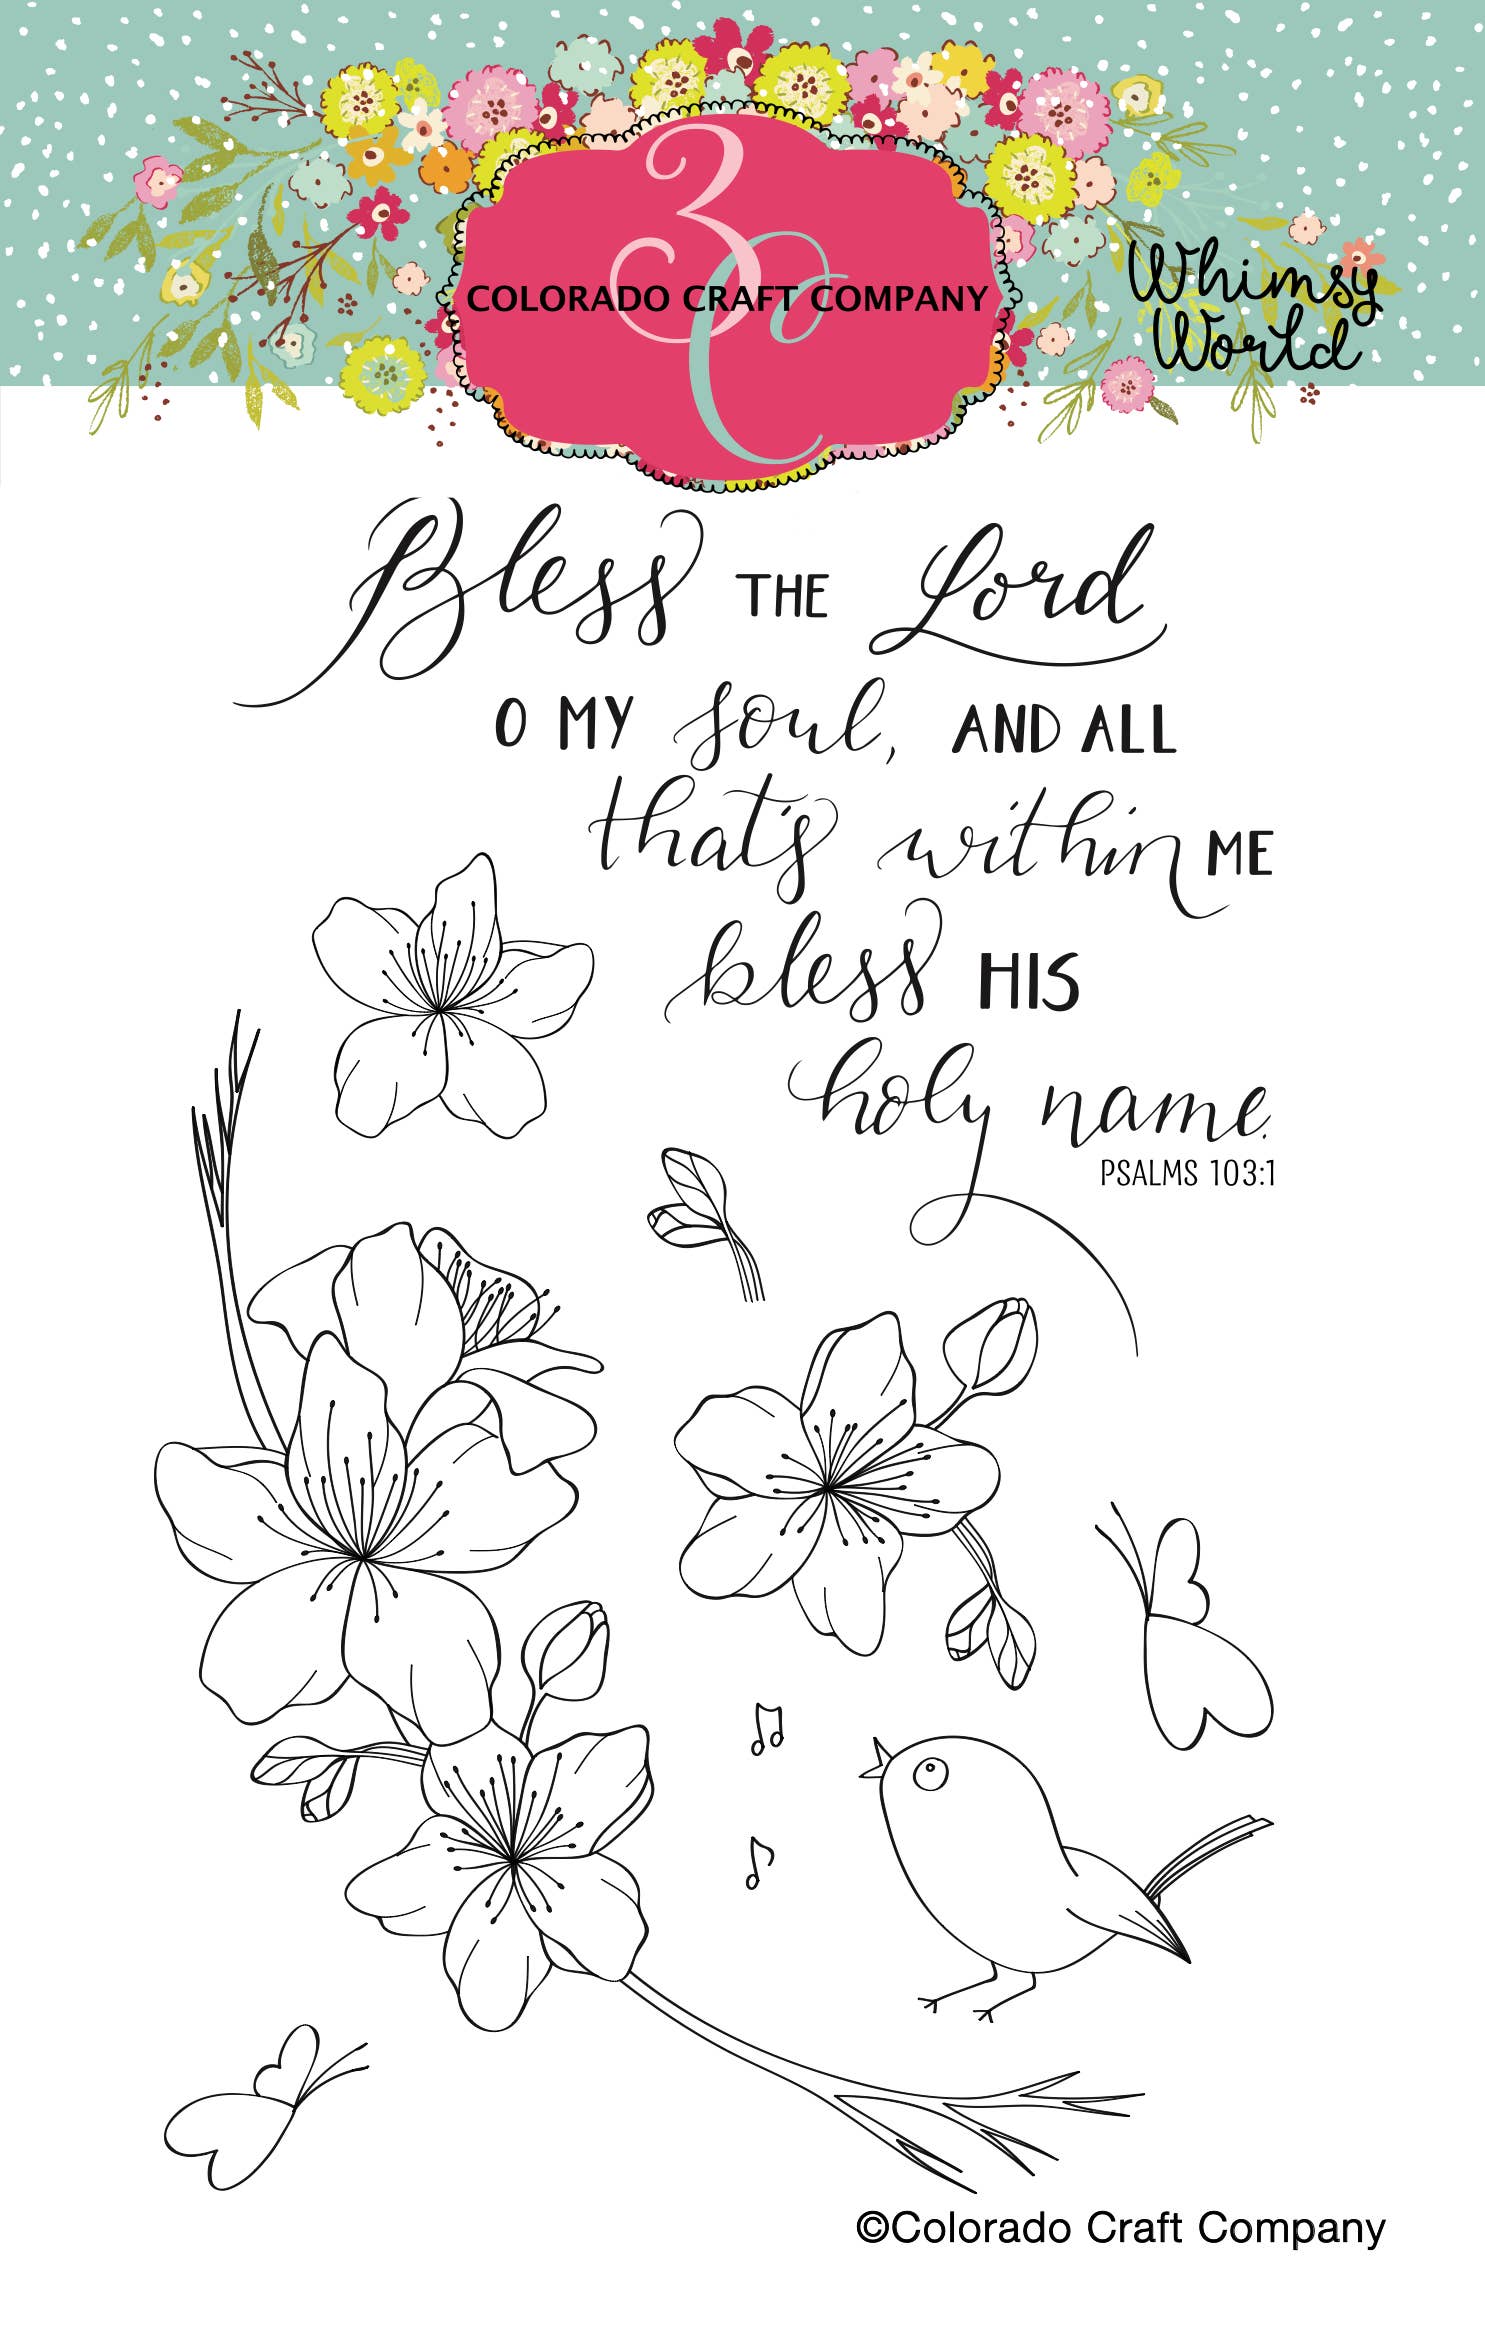 3C
COLORADO CRAFT COMPANY
Whimsy
World
Bless THE Lord
O MY soul, AND ALL
that's within ME
bless HIS
holy name.
PSALMS 103:1
©Colorado Craft Company